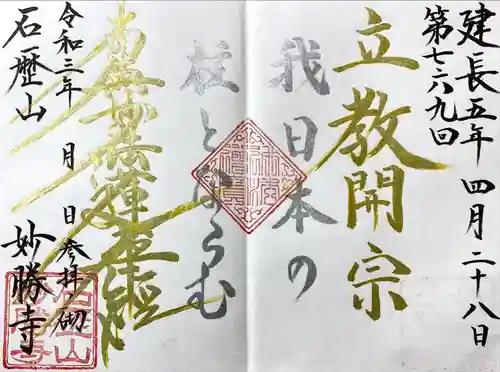 建長五年 四月二十八日
第七六九回
立教開宗
我日本の
柱とならむ
南無妙法蓮華経
令和三年 月 日 参拝之砌
石歴山 妙勝寺